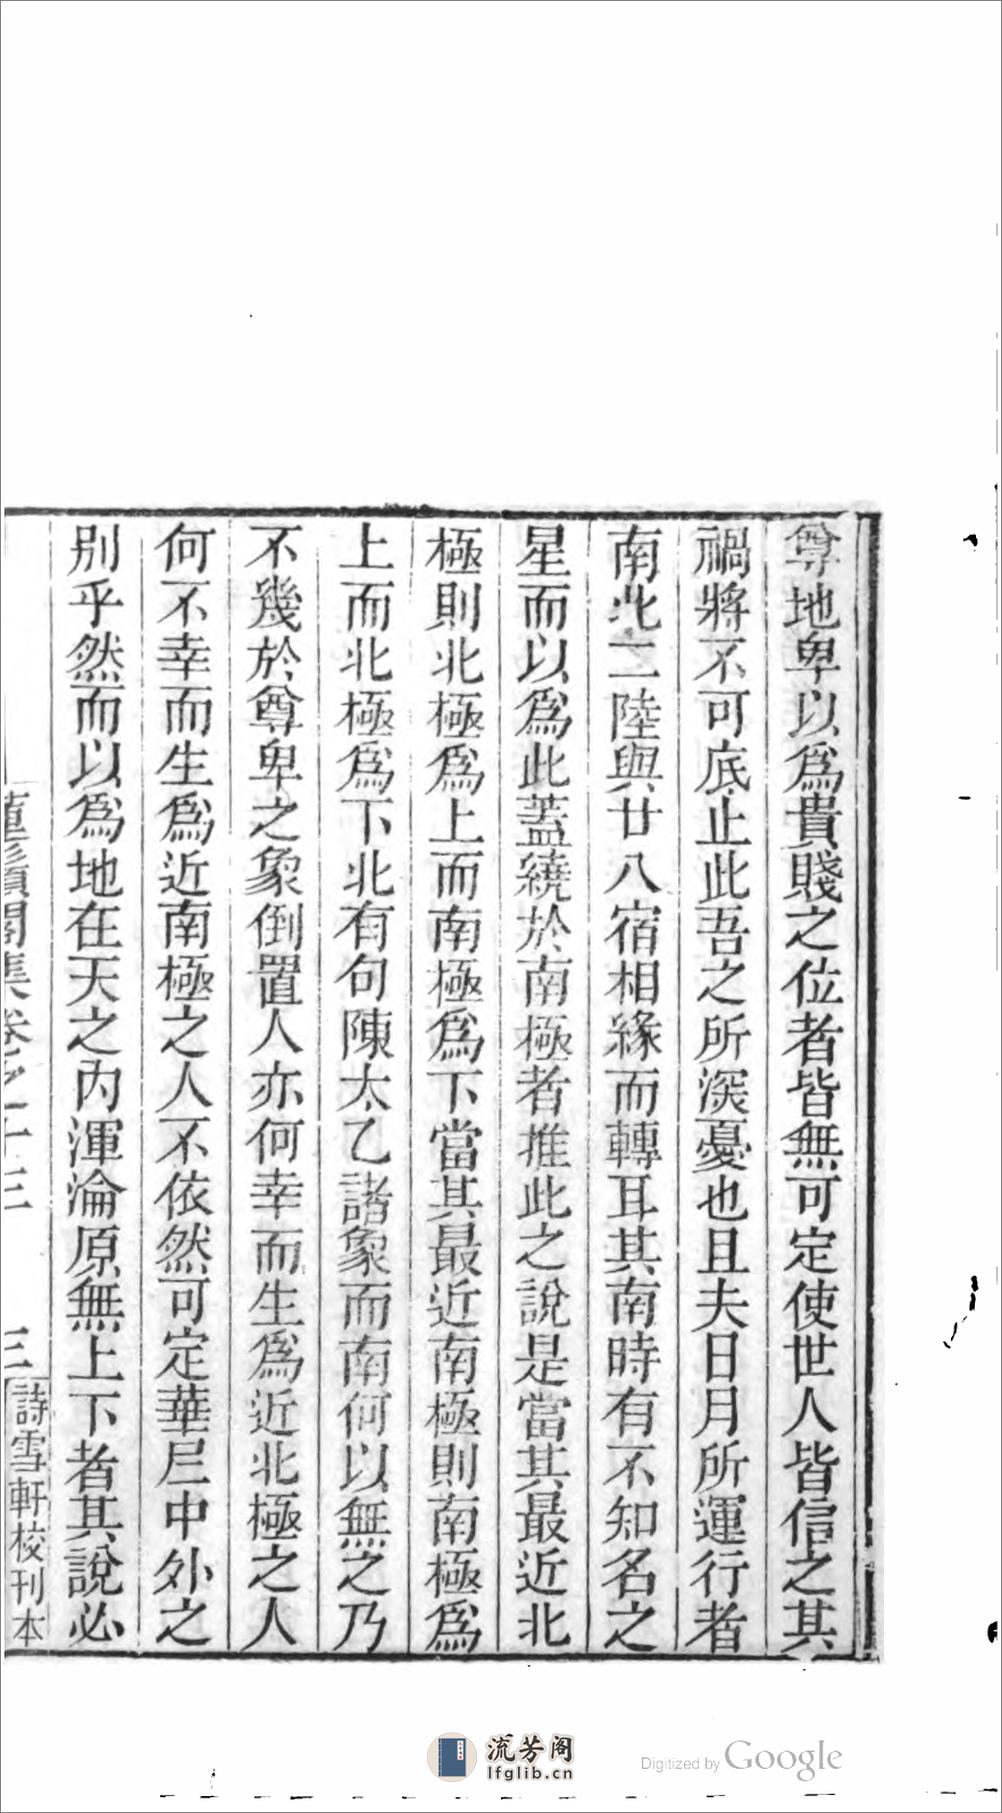 尊地卑以爲貴賤之位者皆無可定使世人皆信之其
禍將不可底止此吾之所深憂也且夫日月所運行者
南北二陸與廿八宿相緣而轉耳其南時有不知名之
星而以爲此蓋繞於南極者推此之說是當其最近北
極則北極爲上而南極爲下當其最近南極則南極爲
上而北極爲下北有句陳太乙諸象而南何以無之乃
不幾於尊卑之象倒置人亦何幸而生爲近北極之人
何不幸而生爲近南極之人不依然可定華𡰥中外之
別乎然而以爲地在天之內渾淪原無上下者其說必
集卷之十三
三
詩雪軒校刊本
流芳阁
lfglib.cn
Digitized by Google